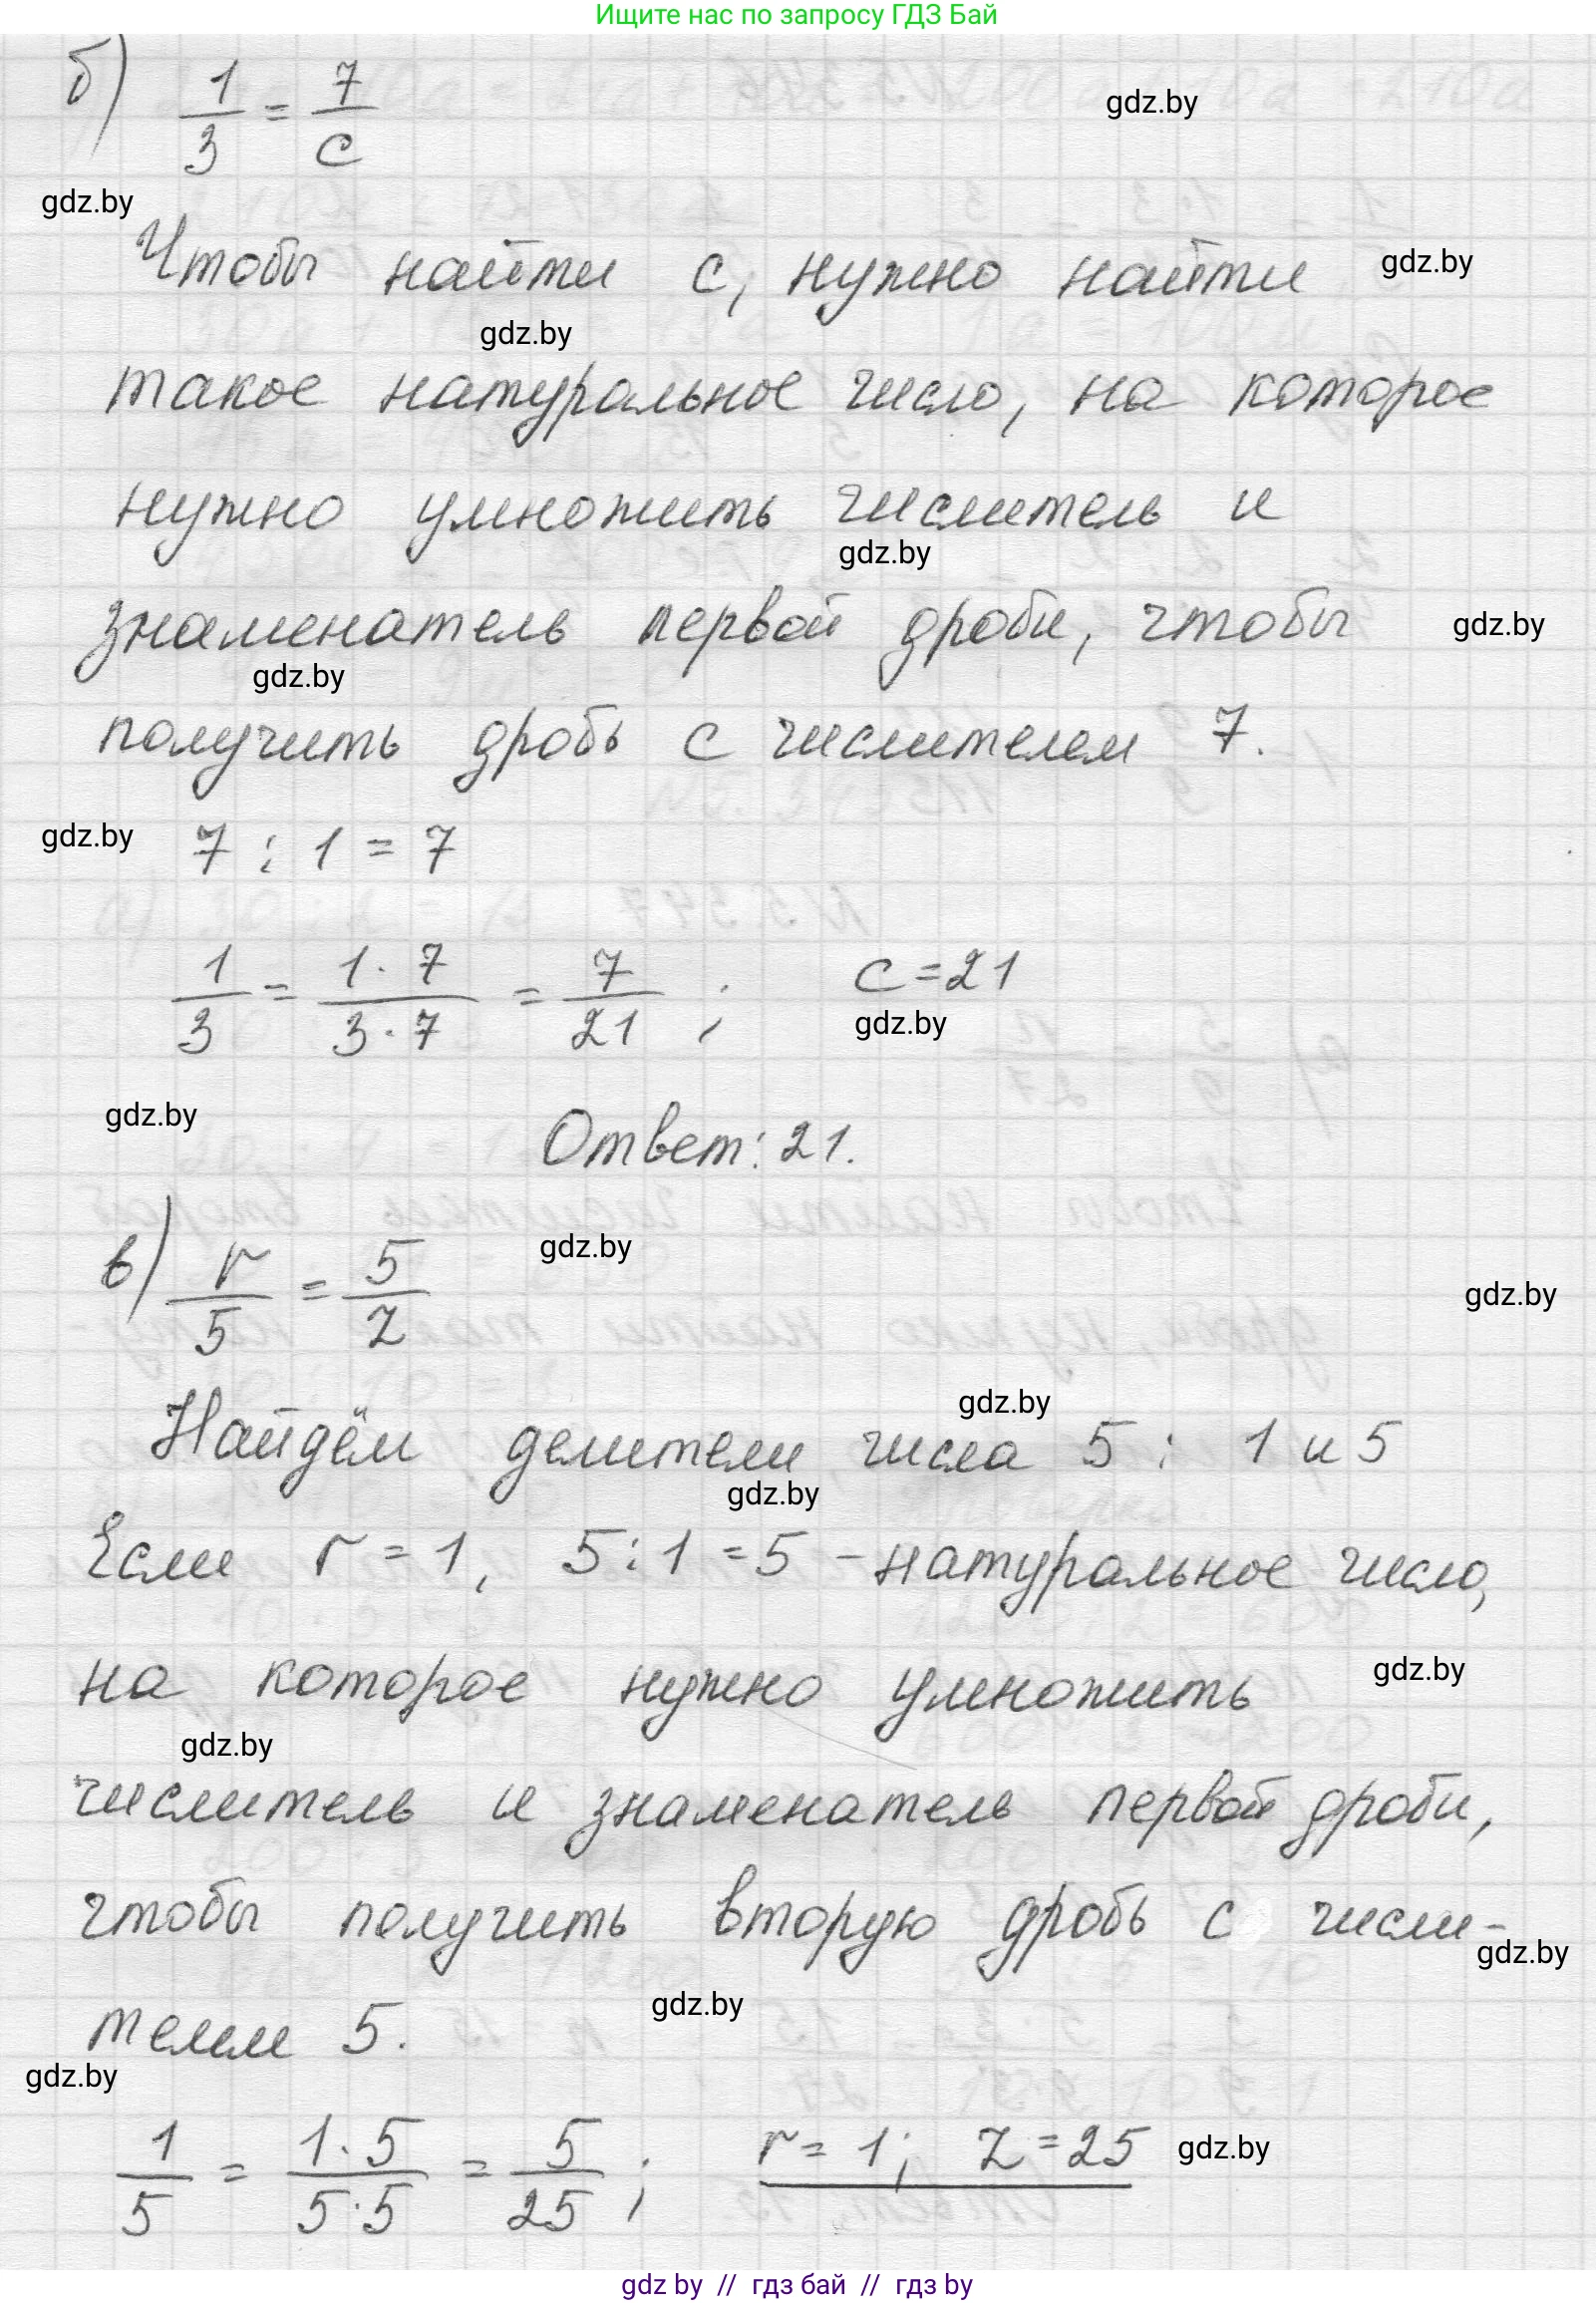 Ищите нас по запросу ГДЗ Бай
б) 1/3 = 7/c
gdz.by
gdz.by
Чтобы найти c, нужно найти
gdz.by
gdz.by
такое натуральное число, на которое
нужно умножить числитель и
gdz.by
знаменатель первой дроби, чтобы
gdz.by
gdz.by
получить дробь с числителем 7.
gdz.by
7 : 1 = 7
1/3 = 1·7/3·7 = 7/21 ; c = 21
gdz.by
gdz.by
Ответ: 21.
в) r/5 = 5/z
gdz.by
gdz.by
gdz.by
Найдём делители числа 5 : 1 и 5
gdz.by
Если r = 1, 5 : 1 = 5 - натуральное число,
на которое нужно умножить
gdz.by
gdz.by
числитель и знаменатель первой дроби,
чтобы получить вторую дробь с числи-
gdz.by
gdz.by
телем 5.
gdz.by
1/5 = 1·5/5·5 = 5/25 ; r = 1; z = 25
gdz.by
gdz by // гдз бай // гдз by